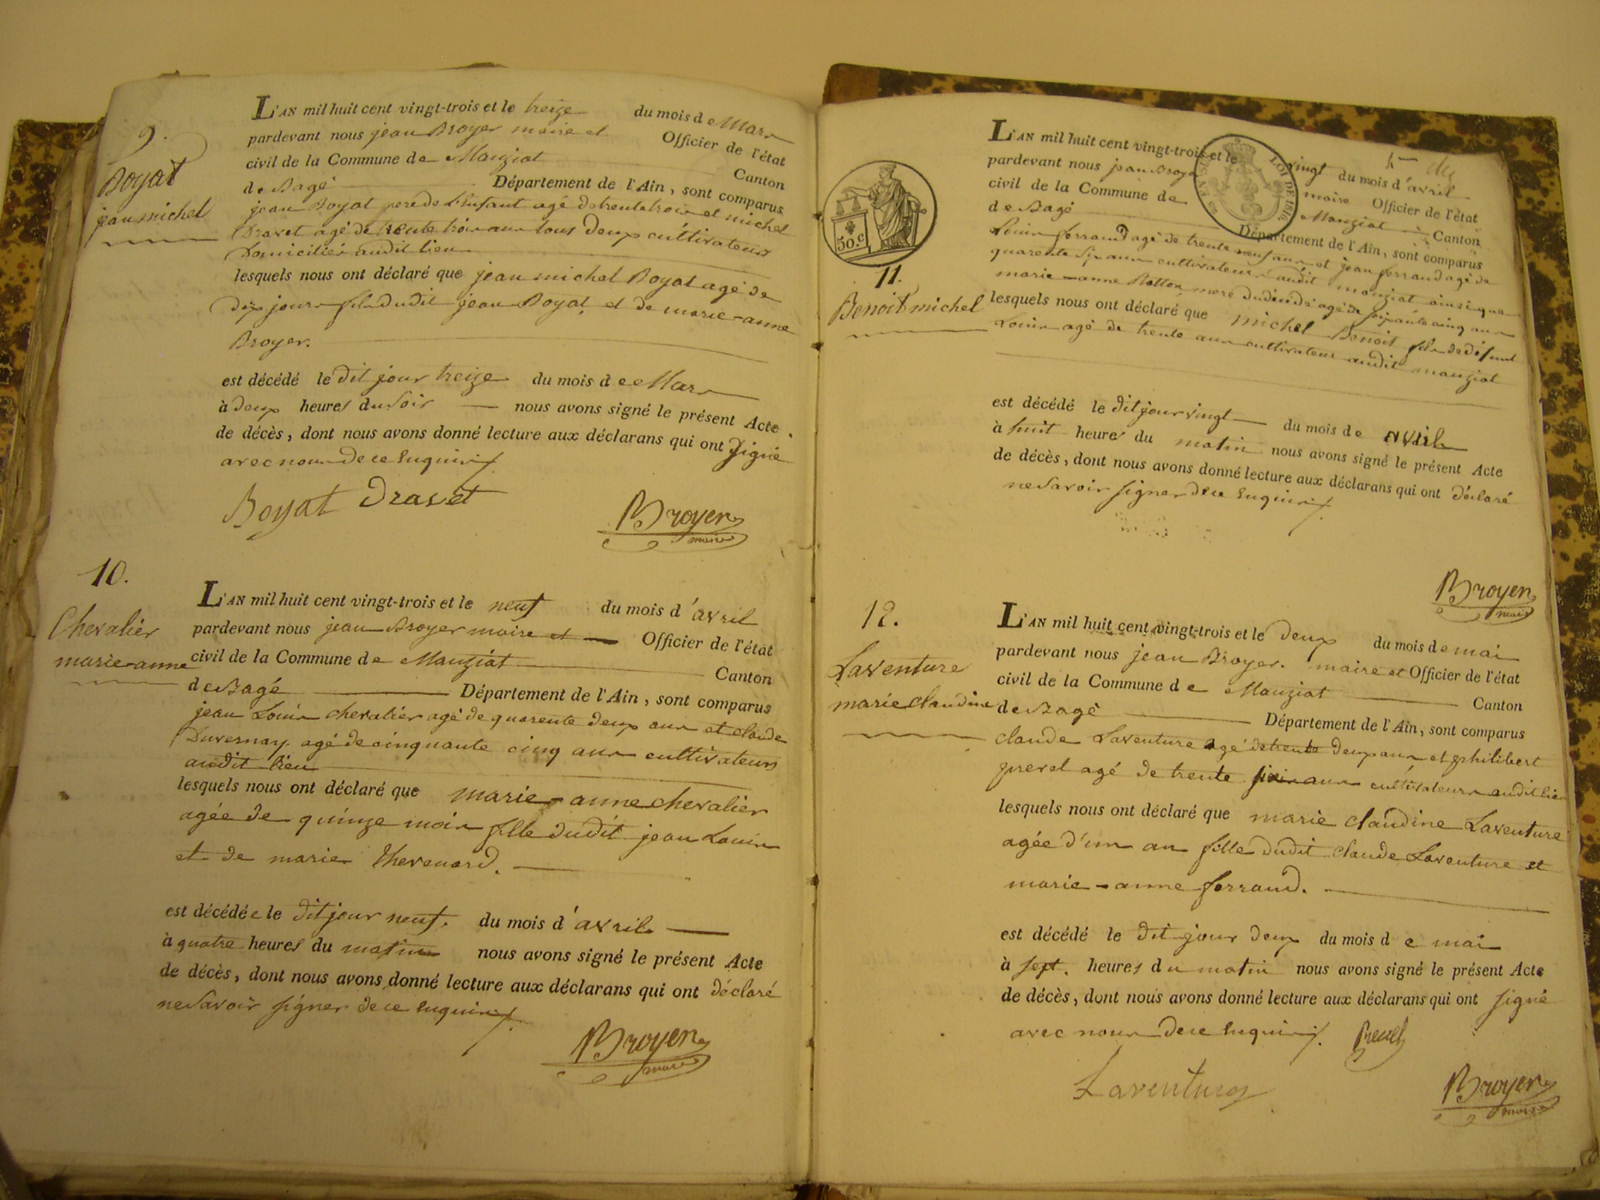 9.
Boyat
jean michel
L'AN mil huit cent vingt-trois et le treize du mois de Mars
pardevant nous jean Broyer maire et Officier de l'état
civil de la Commune de Manziat Canton
de Bagé Département de l'Ain, sont comparus
jean Boyat pere de l'enfant agé de trente trois et michel
Dravet agé de trente trois ans tous deux cultivateurs
Domiciliés audit lieu
lesquels nous ont déclaré que jean michel Boyat agé de
dix jours fils dudit jean Boyat et de marie-anne
Broyer.
est décédé le dit jour treize du mois de Mars
à deux heures du soir nous avons signé le présent Acte
de décès, dont nous avons donné lecture aux déclarans qui ont signé
avec nous de ce enquis
Boyat Dravet
Broyer
maire
10.
Chevalier
marie-anne
L'AN mil huit cent vingt-trois et le neuf du mois d'avril
pardevant nous jean Broyer maire et Officier de l'état
civil de la Commune de Manziat Canton
de Bagé Département de l'Ain, sont comparus
jean Louis chevalier agé de quarente deux ans et claude
Duvernay agé de cinquante cinq ans cultivateurs
audit lieu
lesquels nous ont déclaré que marie-anne chevalier
agée de quinze mois fille dudit jean Louis
et de marie Thevenard.
est décédée le dit jour neuf. du mois d'avril
à quatre heures du matin nous avons signé le présent Acte
de décès, dont nous avons donné lecture aux déclarans qui ont déclaré
ne savoir signer de ce enquis
Broyer
maire
50 c
11.
Benoit michel
L'AN mil huit cent vingt-trois et le vingt du mois d'avril
pardevant nous jean Broyer maire Officier de l'état
civil de la Commune de Manziat Canton
de Bagé Département de l'Ain, sont comparus
Louis ferrand agé de trente neuf ans et jean ferrand agé de
quarente six ans cultivateurs audit manziat ainsi que
marie-anne mere dudit agé de soixante cinq ans
lesquels nous ont déclaré que michel Benoit fils de défunt
Louis agé de trente ans cultivateur audit manziat
est décédé le dit jour vingt du mois de avril
à huit heures du matin nous avons signé le présent Acte
de décès, dont nous avons donné lecture aux déclarans qui ont déclaré
ne savoir signer de ce enquis
Broyer
maire
12.
Laventure
marie claudine
L'AN mil huit cent vingt-trois et le deux du mois de mai
pardevant nous jean Broyer. maire et Officier de l'état
civil de la Commune de Manziat Canton
de Bagé Département de l'Ain, sont comparus
claude Laventure agé de trente deux ans et philibert
prevel agé de trente six ans cultivateurs audit lieu
lesquels nous ont déclaré que marie claudine Laventure
agée d'un an fille dudit claude Laventure et
marie-anne ferrand.
est décédé le dit jour deux du mois de mai
à sept. heures du matin nous avons signé le présent Acte
de décès, dont nous avons donné lecture aux déclarans qui ont signé
avec nous de ce enquis Prevel
Laventure
Broyer
maire